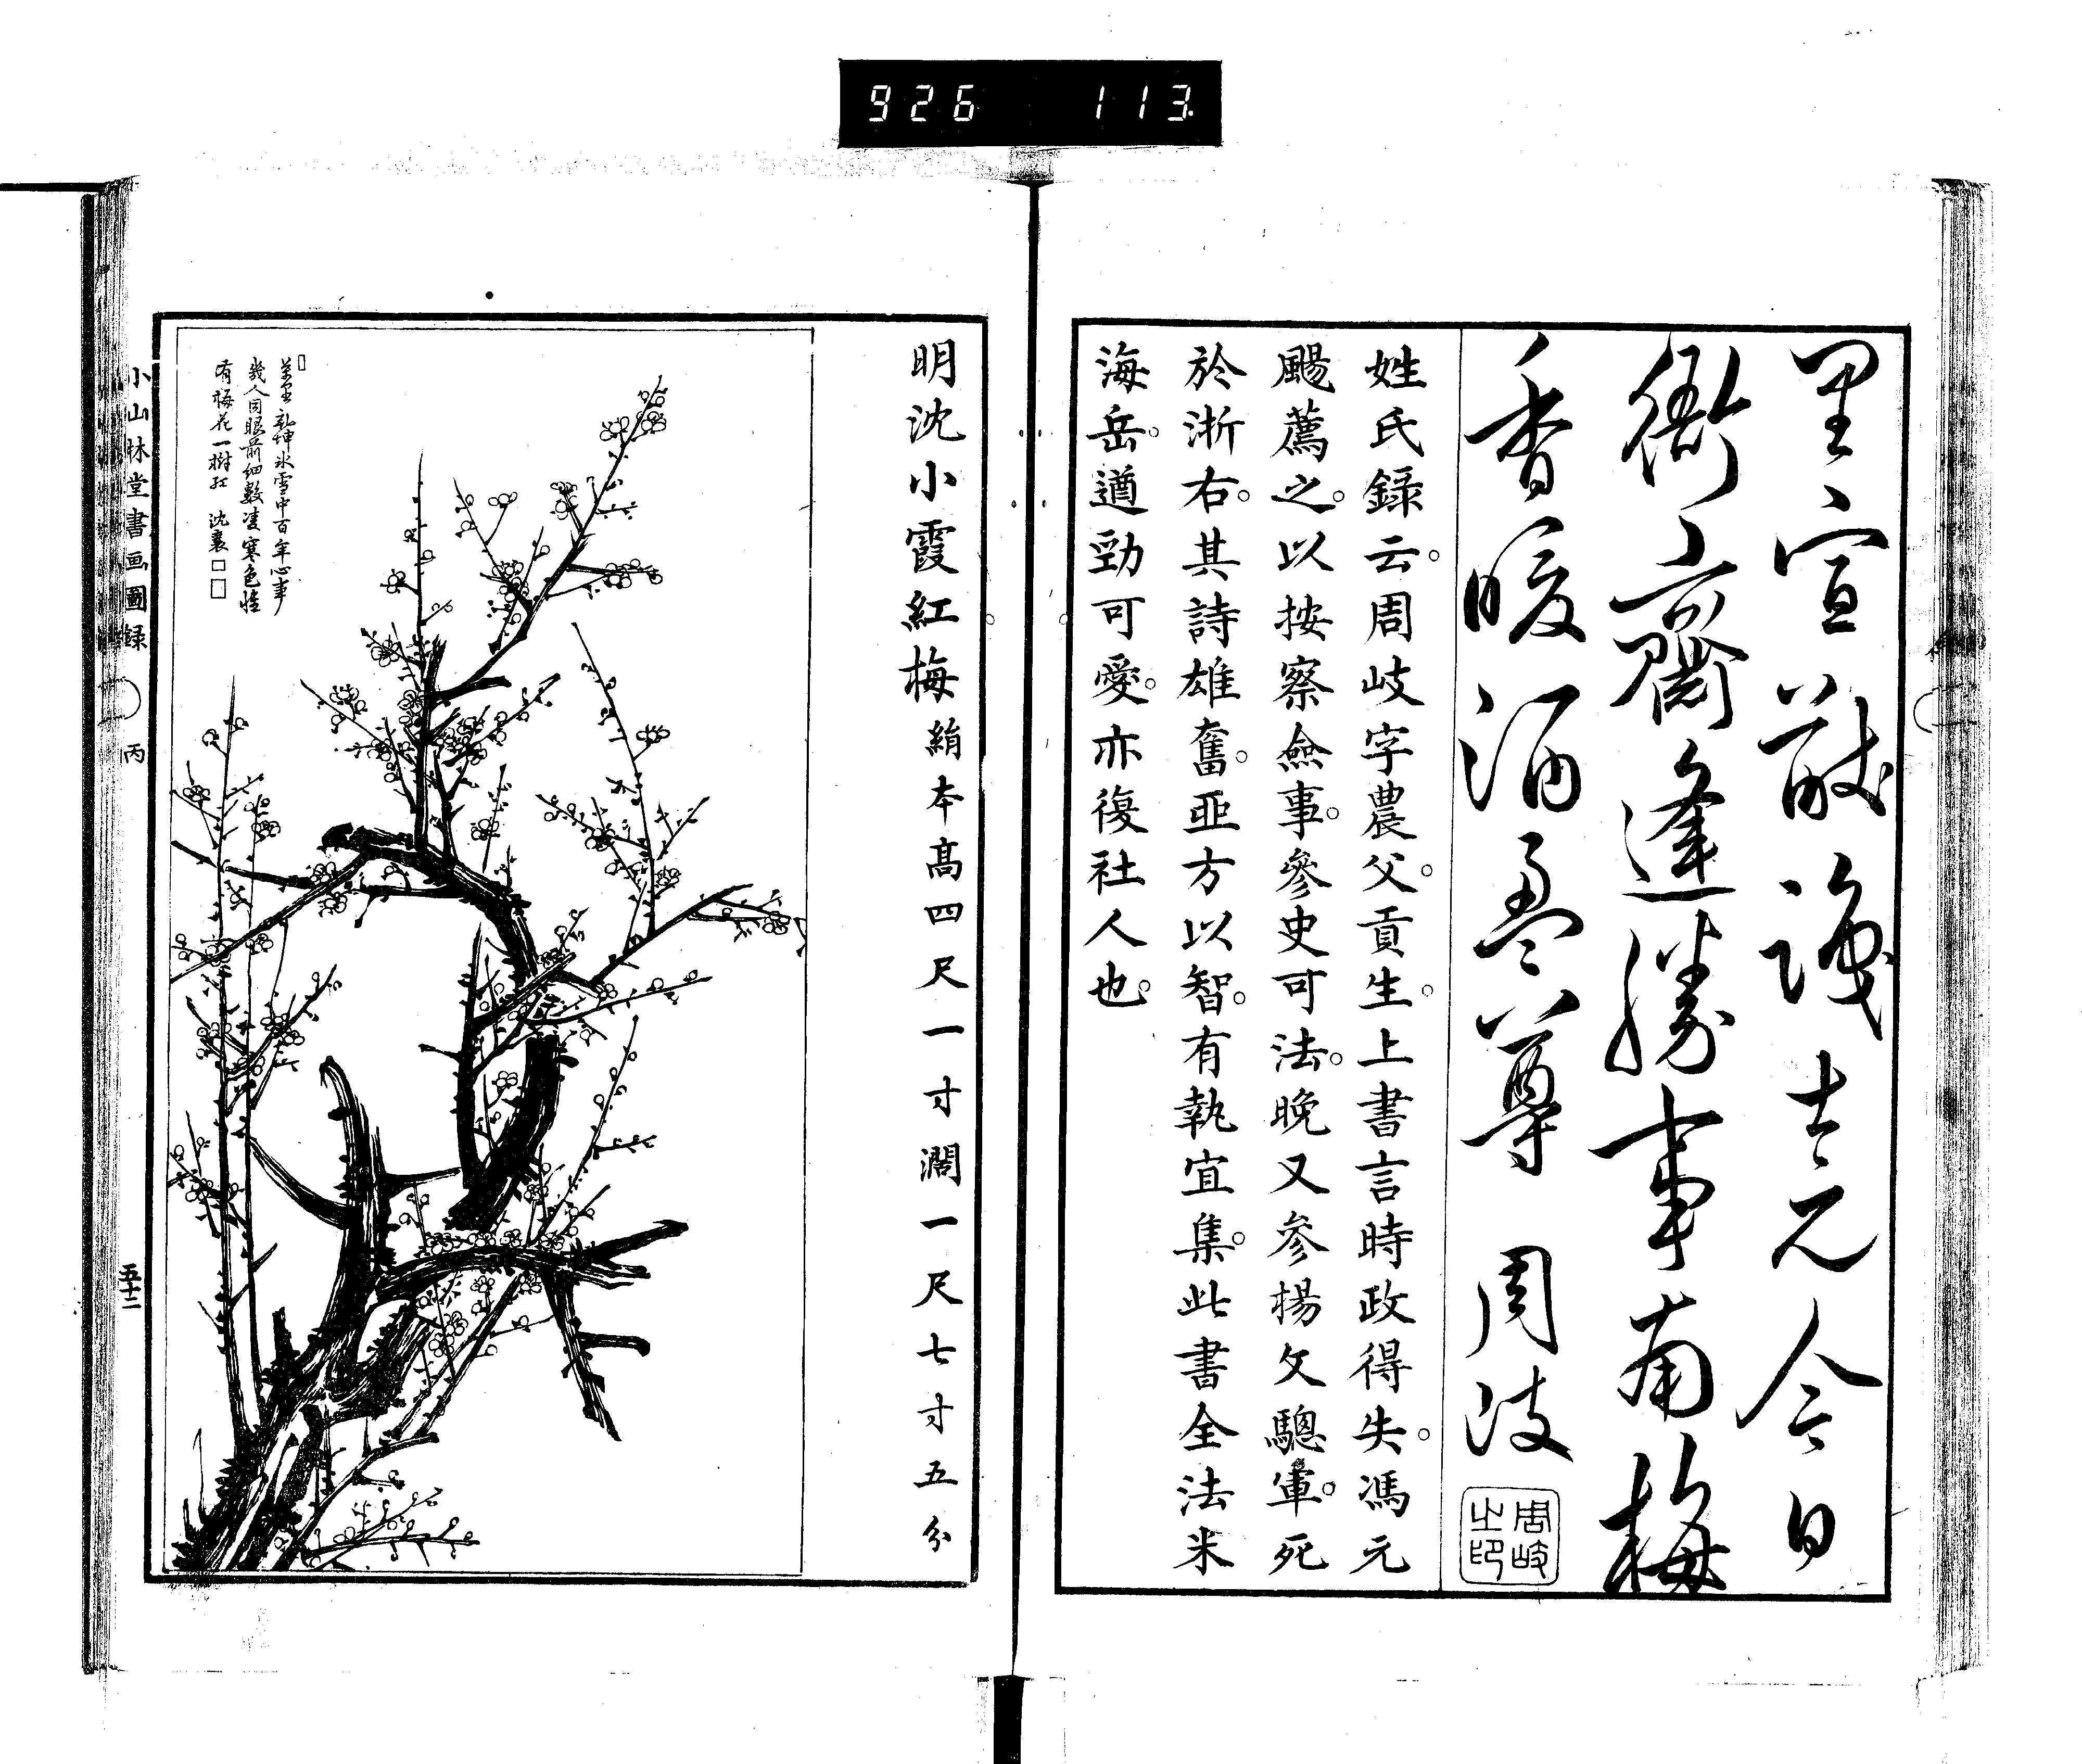 926 113.
里宣猷識士元今日
衙齋逢勝事南梅
香暖酒盈尊 周岐
周岐
之印
姓氏録云周岐字農父貢生上書言時政得失馮元
颺薦之以按察僉事參史可法晚又參楊文驄軍死
於浙右其詩雄奮亚方以智有執宜集此書全法米
海岳遒勁可愛亦復社人也
明沈小霞紅梅絹本高四尺一寸濶一尺七寸五分
乾坤氷雪中百年心事
幾人同眼前細數凌寒色惟
有梅花一樹紅 沈襄
小山林堂書画圖録 丙 五十二